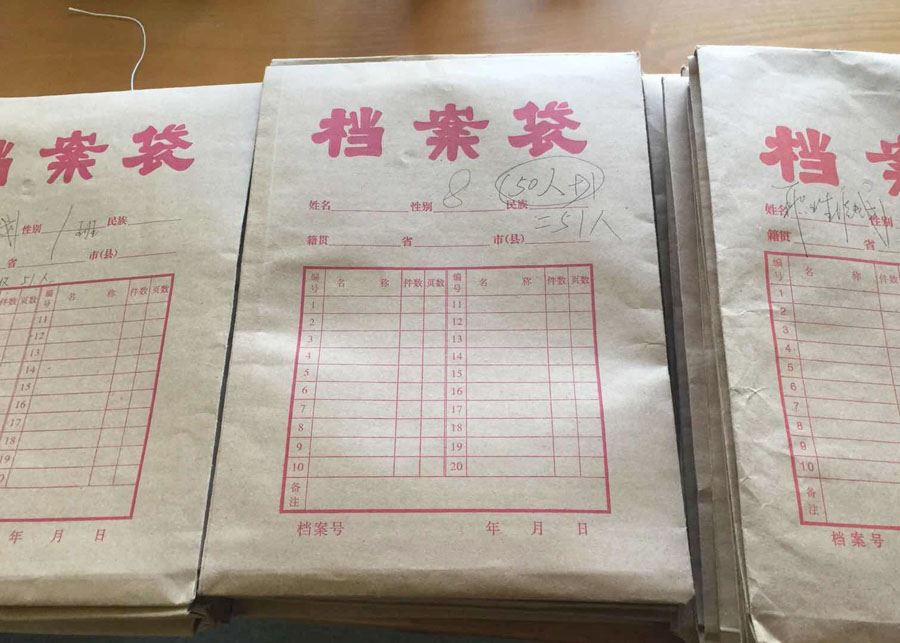 档案袋
性别 1班 民族
省 市(县)
51人
件数 页数 编号 名 称 件数 页数
11
12
13
14
15
16
17
18
19
年 月 日
档案袋
8 (50人+1)
姓名 性别 民族
=51人
籍贯 省 市(县)
编号 名 称 件数 页数 编号 名 称 件数 页数
1 11
2 12
3 13
4 14
5 15
6 16
7 17
8 18
9 19
10 20
备注
档案号 年 月 日
档案
姓名 性别
籍贯 省
编号 名 称 件数
1
2
3
4
5
6
7
8
9
10
备注
档案号